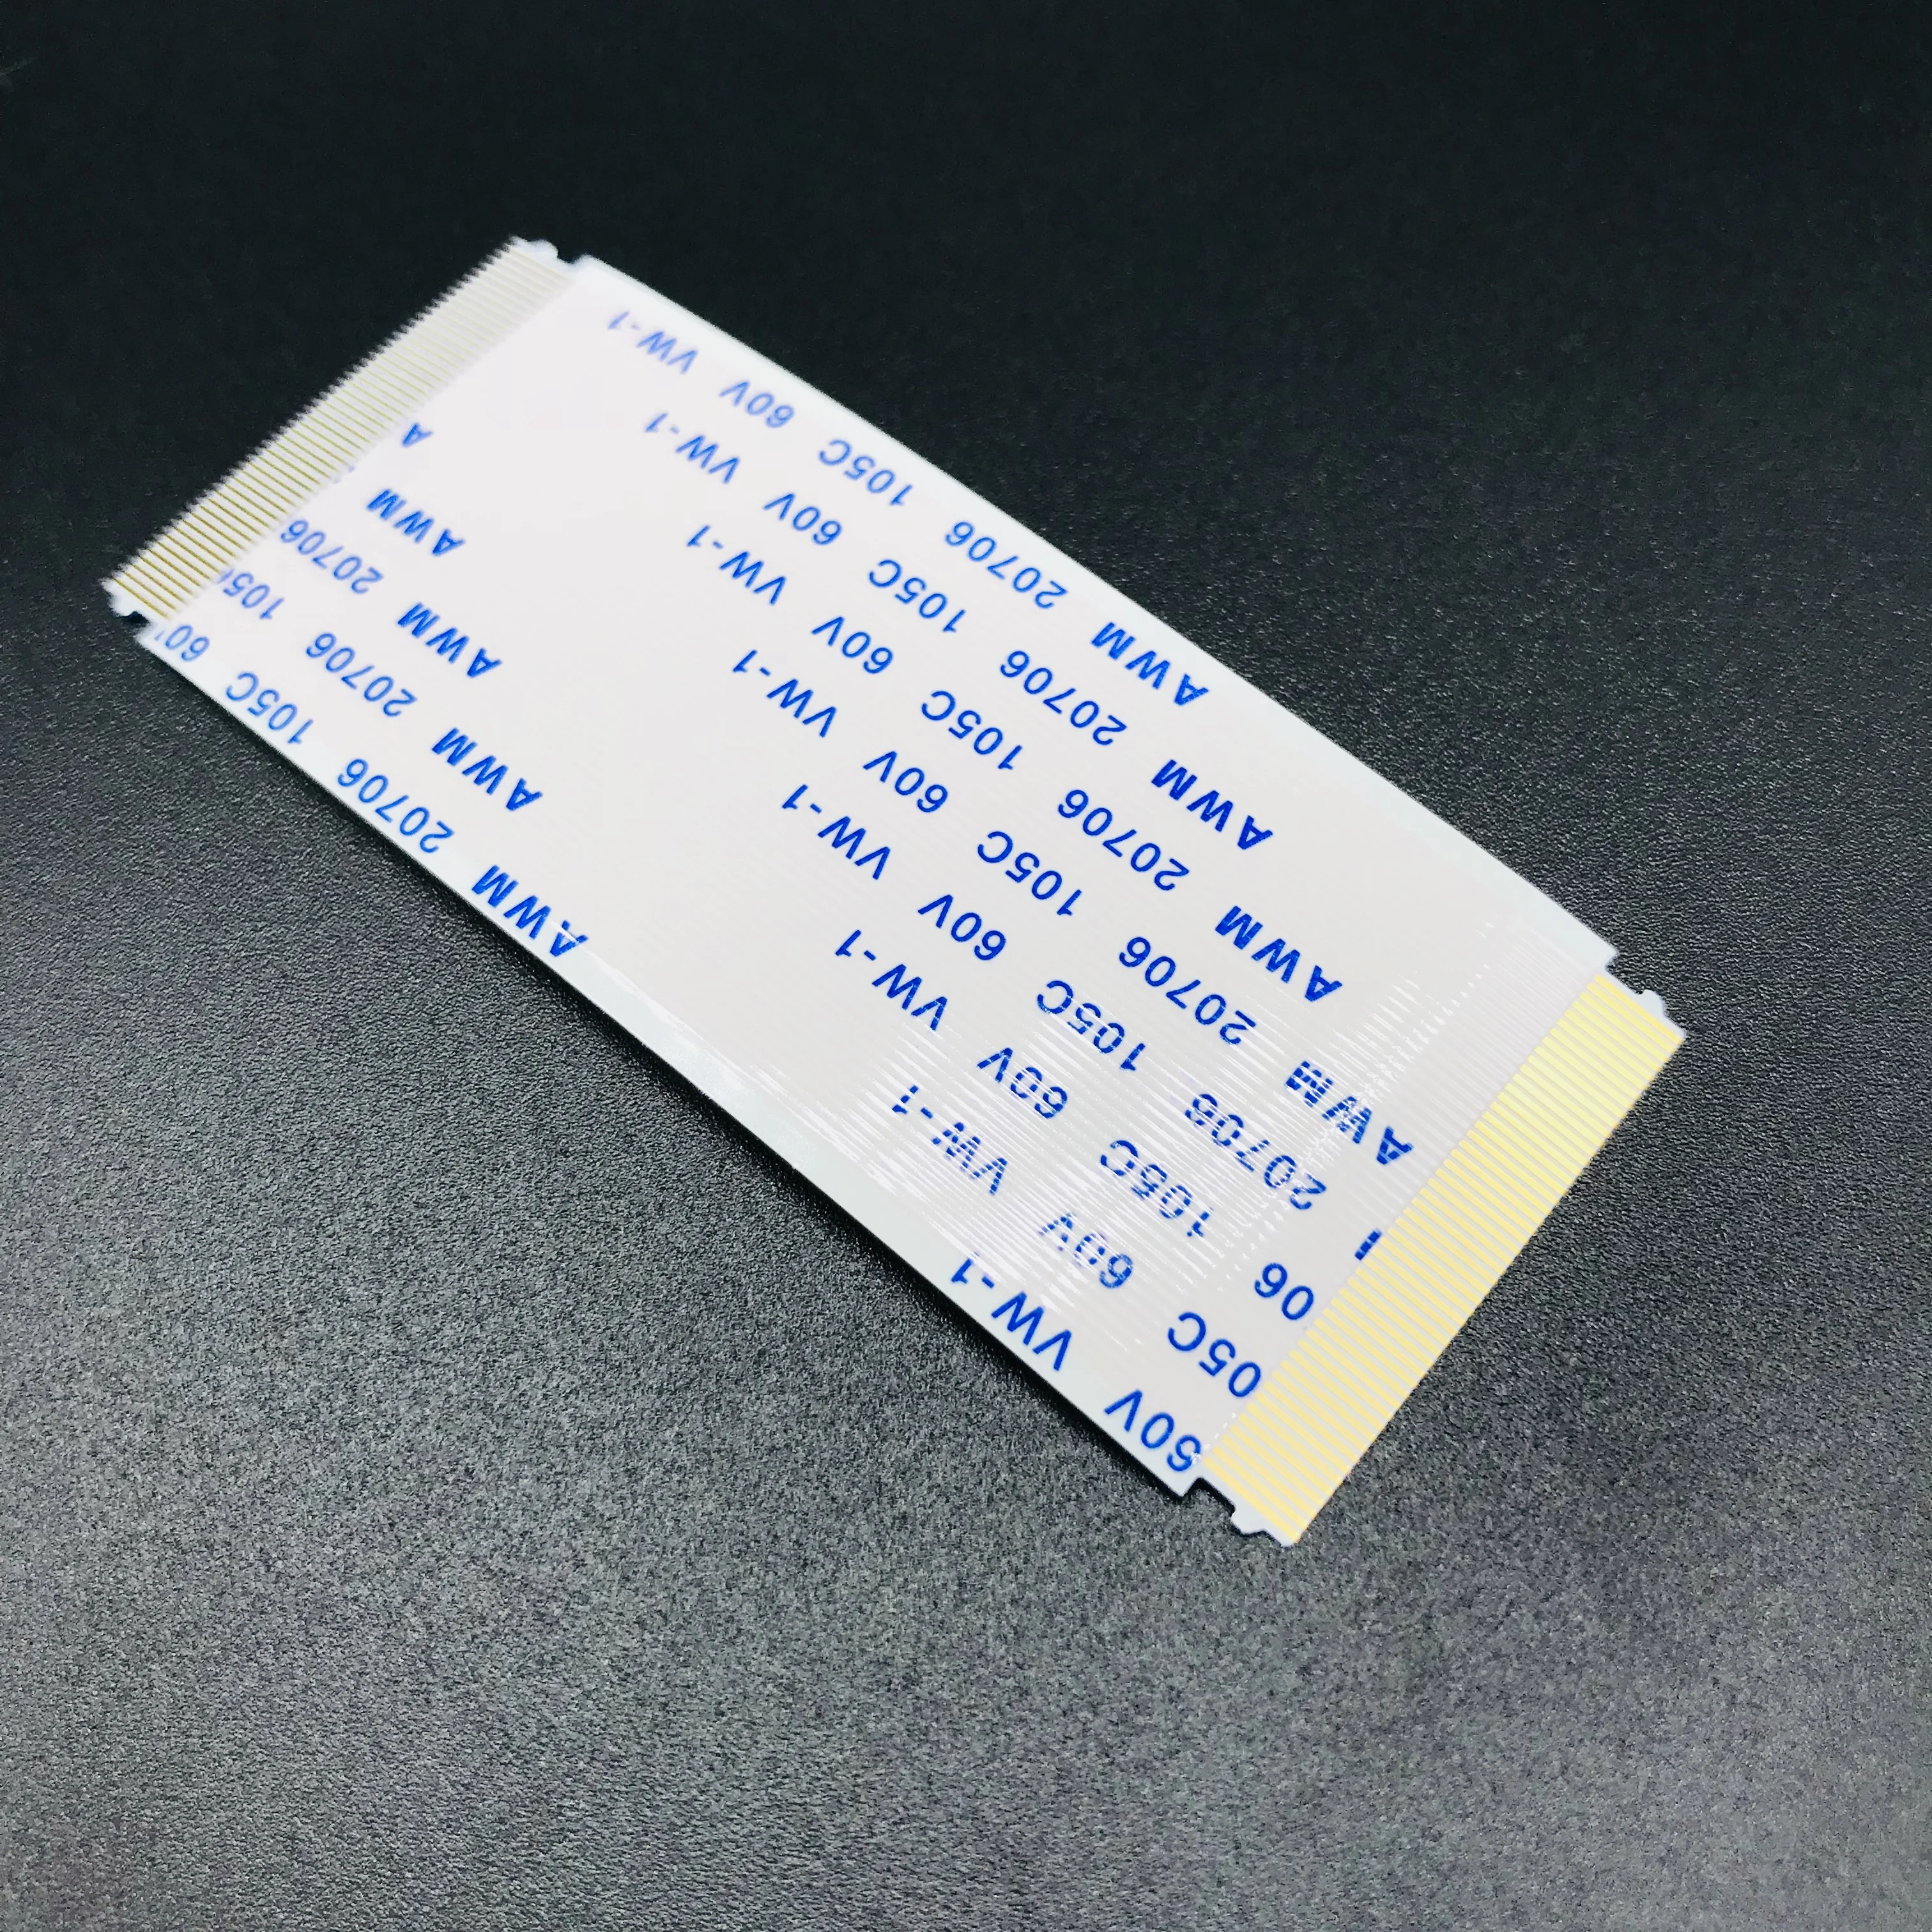 60V VW-1 AWM 20706 105C 60
05C 60V VW-1 AWM 20706 105
06 105C 60V VW-1 AWM 20706
20706 105C 60V VW-1 AWM
AWM 20706 105C 60V VW-1 A
AWM 20706 105C 60V VW-1
AWM 20706 105C 60V VW-1
AWM 20706 105C 60V VW-1